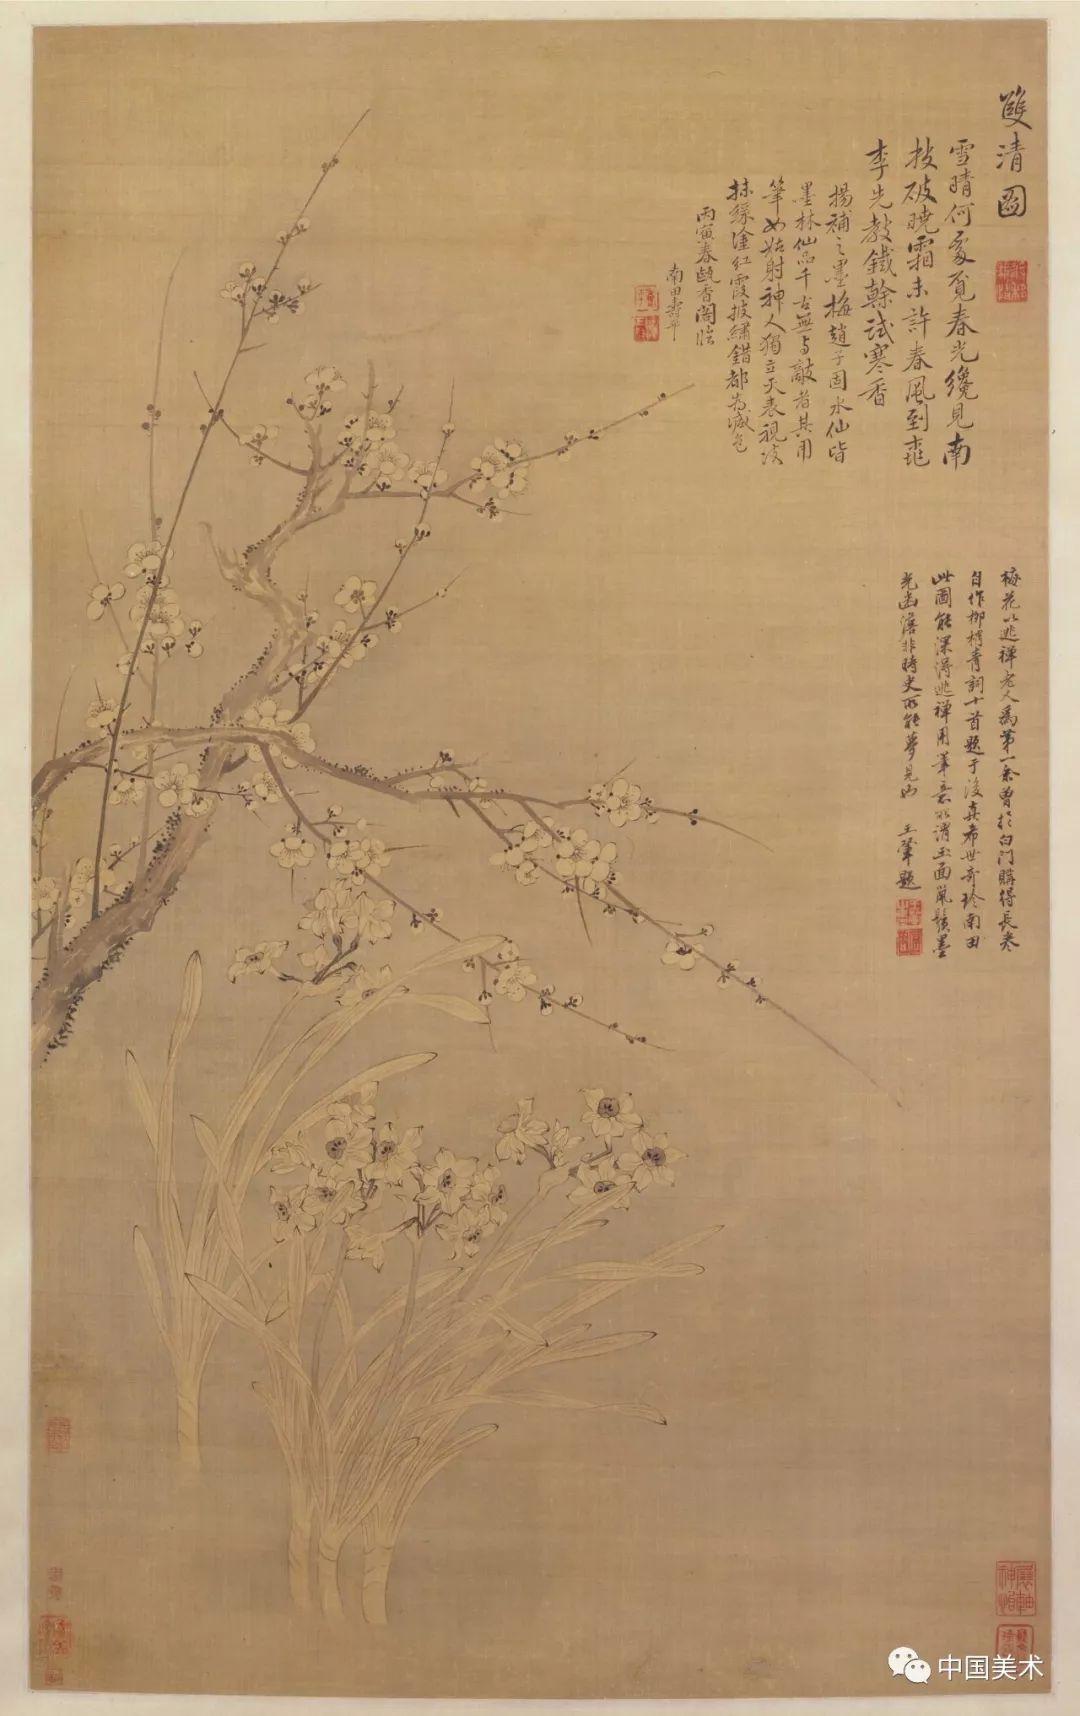 雙清圖
雪晴何處覓春光纔見南
枝破曉霜未許春風到桃
李先教鐵榦試寒香
揚補之墨梅趙子固水仙皆
墨林仙品千古無與敵者其用
筆如姑射神人獨立天表視凌
抹綠塗紅霞披繡錯都為減色
丙寅春甌香閣臨
南田壽平
梅花以逃禪老人為第一余曾於白門購得長卷
自作柳梢青詞十首題于後真希世奇珍南田
此圖能深得逃禪用筆意所謂玉面鼠鬚墨
光幽澹非時史所能夢見也 王翬題
中国美术